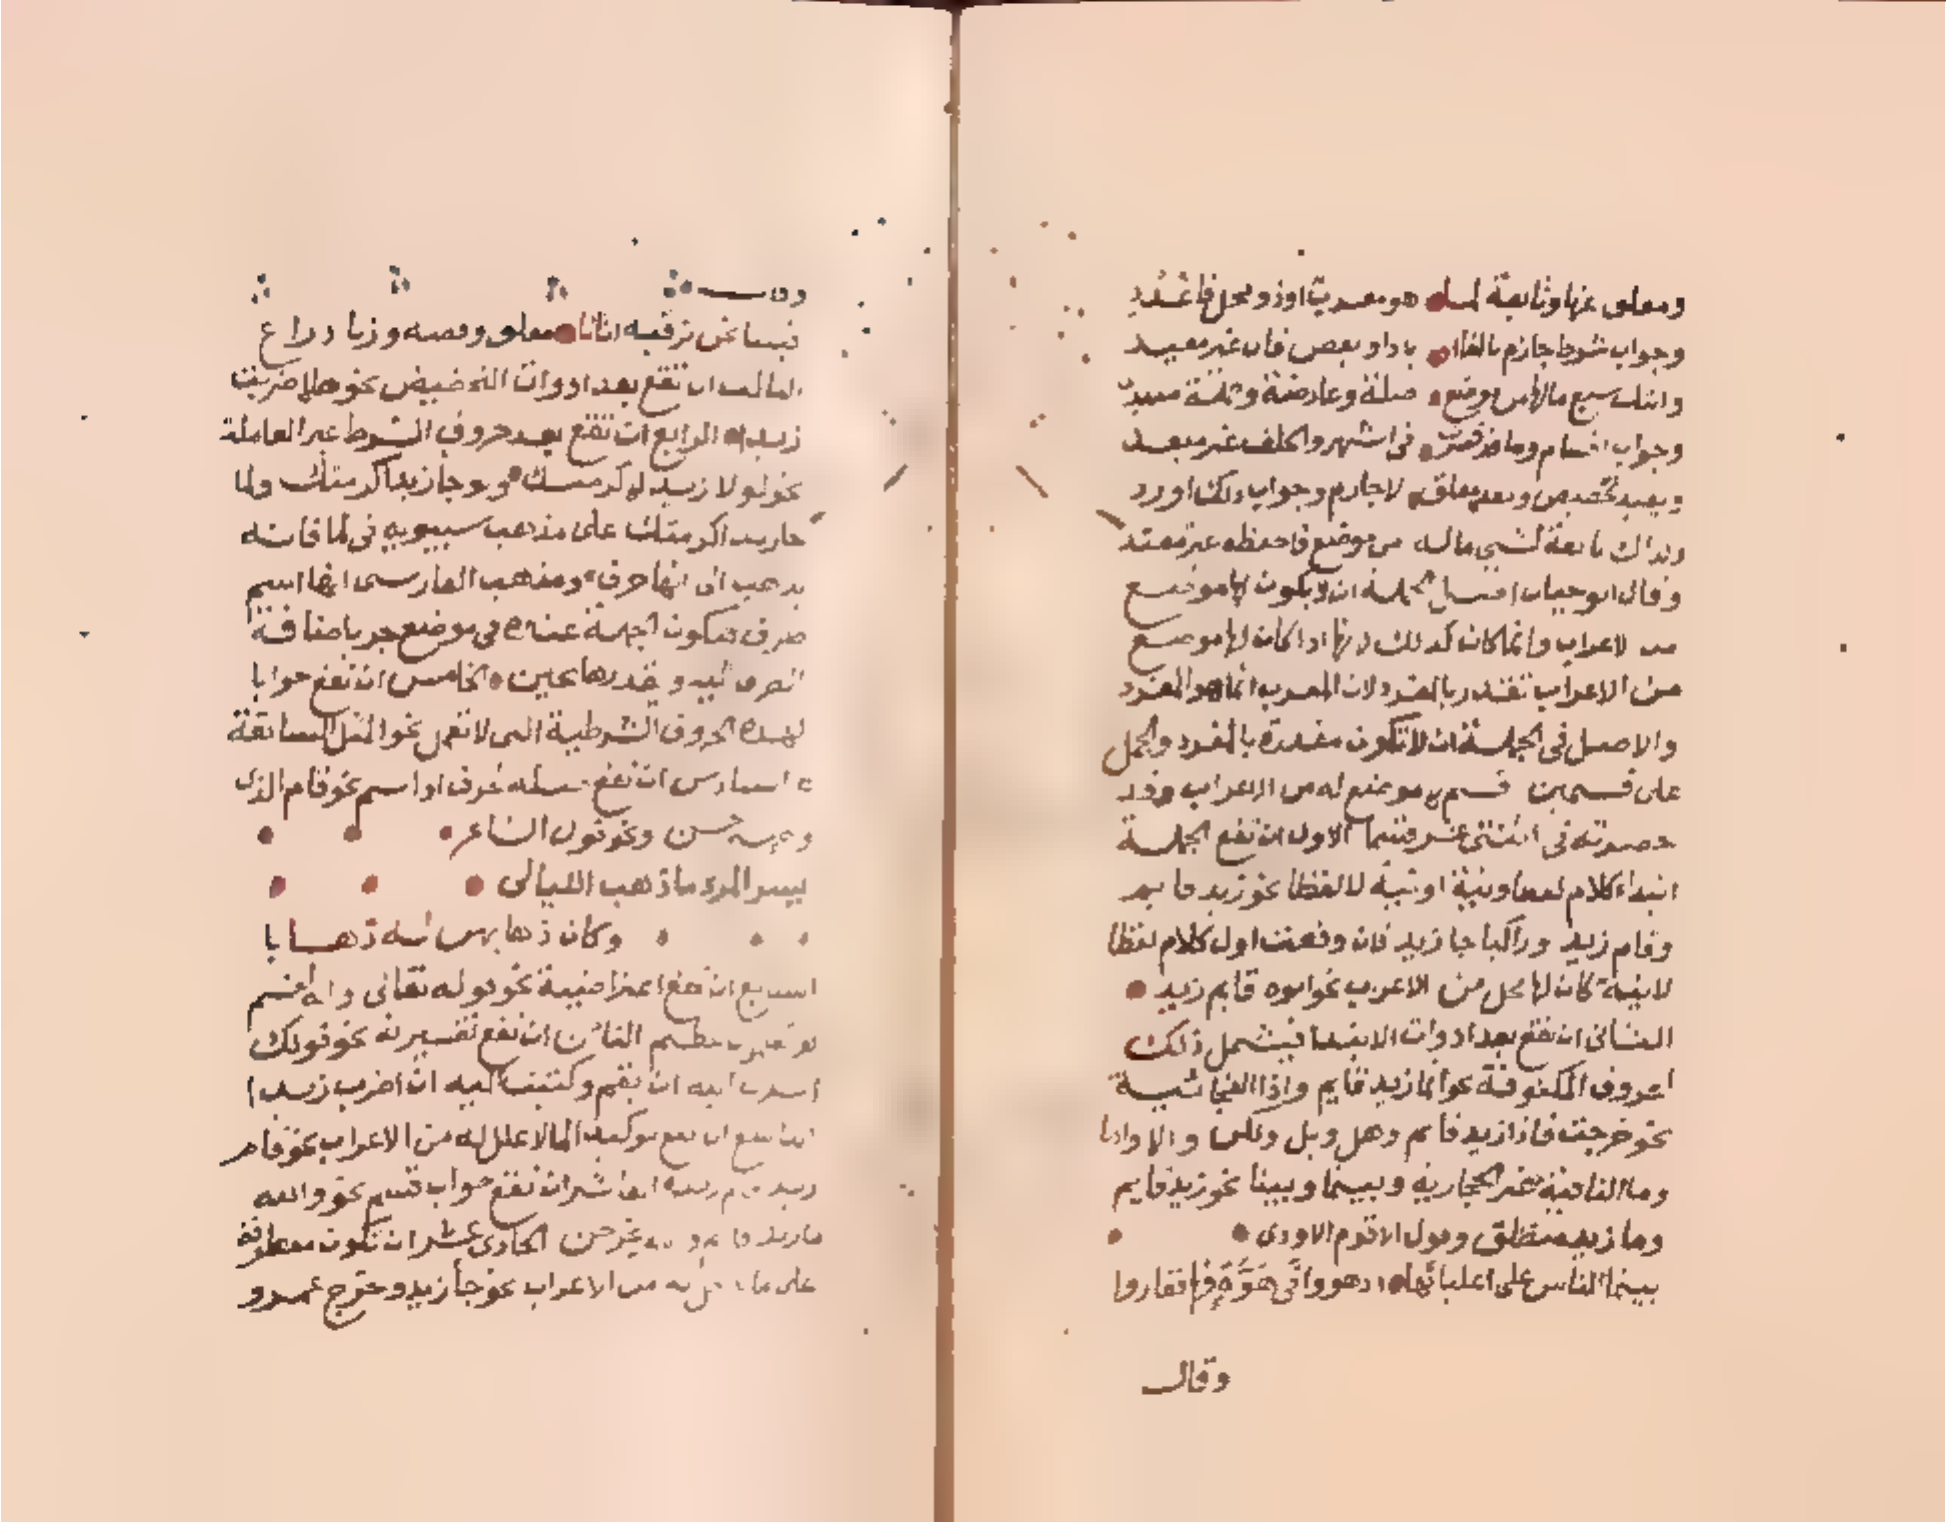 ومعلق عنها وتابعة لما هو معرب او ذو محل فاعدد
وجواب شرط جازم بالفا او باذا وبعض قال غير مقيد
واتتك سبع مالها من موضع صلة وعارضة وجملة مبتد
وجواب اقسام وما قد فسرت في اشهر والخلف غير مبعد
وبعيد تحضيض وبعد معلق لا جازم وجواب ذلك اورد
وكذاك تابعة لشي ماله من موضع فاحفظه غير مفند
وقال ابو حيان اصل الجملة ان لا يكون لها موضع
من الاعراب وانما كان كذلك لانها اذا كان لها موضع
من الاعراب تقدر بالمفرد لان المعرب انما هو المفرد
والاصل في الجملة ان لا تكون مقدرة بالمفرد والجمل
على قسمين قسم لا موضع له من الاعراب وقد
حصرته في اثنتي عشر قسما الاول ان تقع الجملة
ابتداء كلام لفظا ونية او نية لا لفظا نحو زيد قايم
وقام زيد وراكبا جا زيد فان وقعت اول كلام لفظا
لا نية كان لها محل من الاعرب نحو ابوه قايم زيد
الثاني ان تقع بعد ادوات الابتدا فيشمل ذلك
الحروف المكفوفة نحو انما زيد قايم واذا الفجائية
نحو خرجت فاذا زيد قايم وهل وبل ولكن والا واما
وما النافية غير الحجازية وبينما وبينا نحو زيد قايم
وما زيد منطلق وقول الافوه الاودي
بينما الناس على عليائها اذ هووا في هوة فيها فغاروا
وقال
وقال
فبينا نحن نرقبه اتانا معلق وفضة وزناد راع
الثالث ان تقع بعد ادوات التحضيض نحو هلا ضربت
زيدا الرابع ان تقع بعد حروف الشرط غير العاملة
نحو لولا زيد لاكرمتك ولو جا زيد اكرمتك ولما
جا زيد اكرمتك على مذهب سيبويه في لما فانه
يذهب الى انها حرف ومذهب الفارسي انها اسم
ظرف فتكون الجملة عنده في موضع جر باضافة
الظرف اليه ويقدرها بحين الخامس ان تقع جوابا
لهذه الحروف الشرطية التي لا تعمل نحو المثل السابقة
السادس ان تقع صلة لحرف او اسم نحو قام الذي
وجهه حسن ونحو قول الشاعر
يسر المرء ما ذهب الليالي
وكان ذهابهن له ذهابا
السابع ان تقع اعتراضية نحو قوله تعالى وانه لقسم
لو تعلمون عظيم الثامن ان تقع تفسيرية نحو قولك
اشرت اليه ان يقم وكتبت اليه ان اضرب زيدا
التاسع ان تقع توكيدا لما لا محل له من الاعراب نحو قام
زيد قام زيد العاشر ان تقع جواب قسم نحو والله
ما زيد قايم ليخرجن الحادي عشر ان تكون معطوفة
على ما لا محل له من الاعراب نحو جا زيد وخرج عمرو